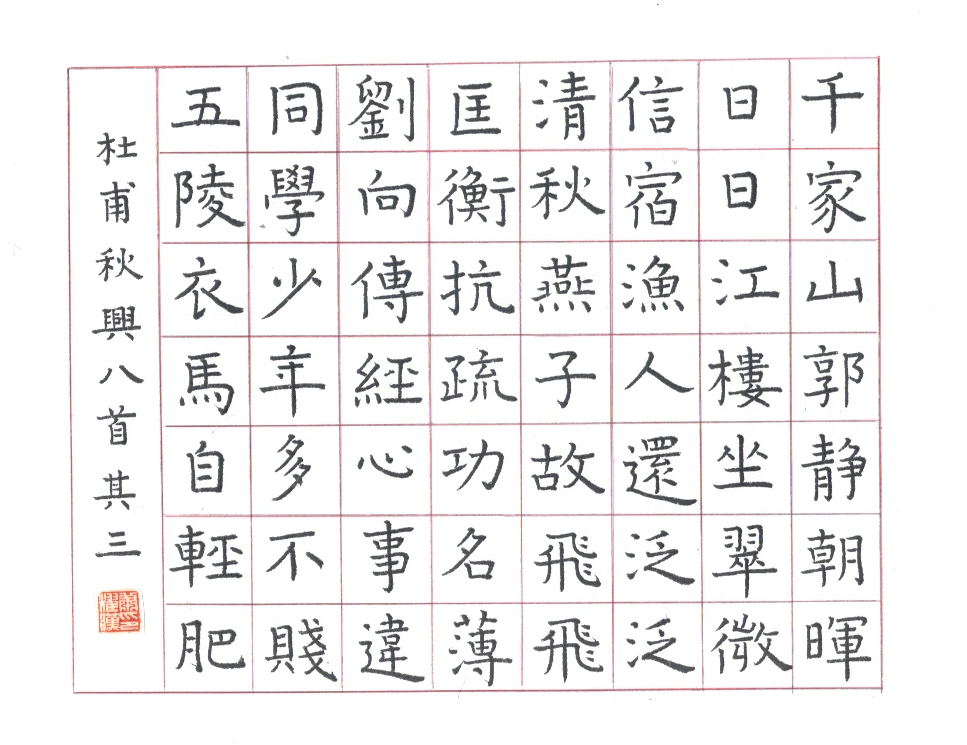 千家山郭静朝暉
日日江樓坐翠微
信宿漁人還泛泛
清秋燕子故飛飛
匡衡抗疏功名薄
劉向傳經心事違
同學少年多不賤
五陵衣馬自輕肥
杜甫秋興八首其三